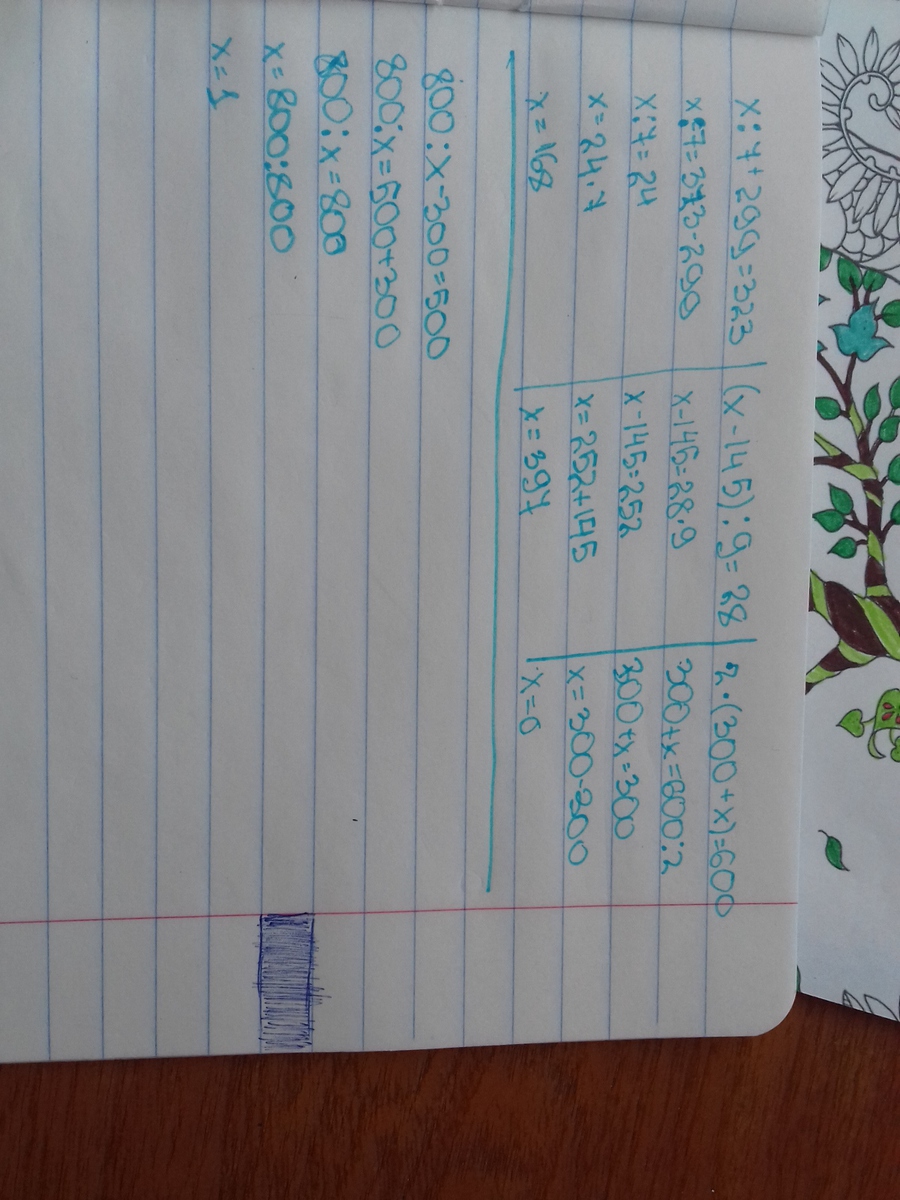 x:7+299=323
x:7=323-299
x:7=24
x=24·7
x=168
(x-145):9=28
x-145=28·9
x-145=252
x=252+145
x=397
2·(300+x)=600
300+x=600:2
300+x=300
x=300-300
x=0
800:x-300=500
800:x=500+300
800:x=800
x=800:800
x=1